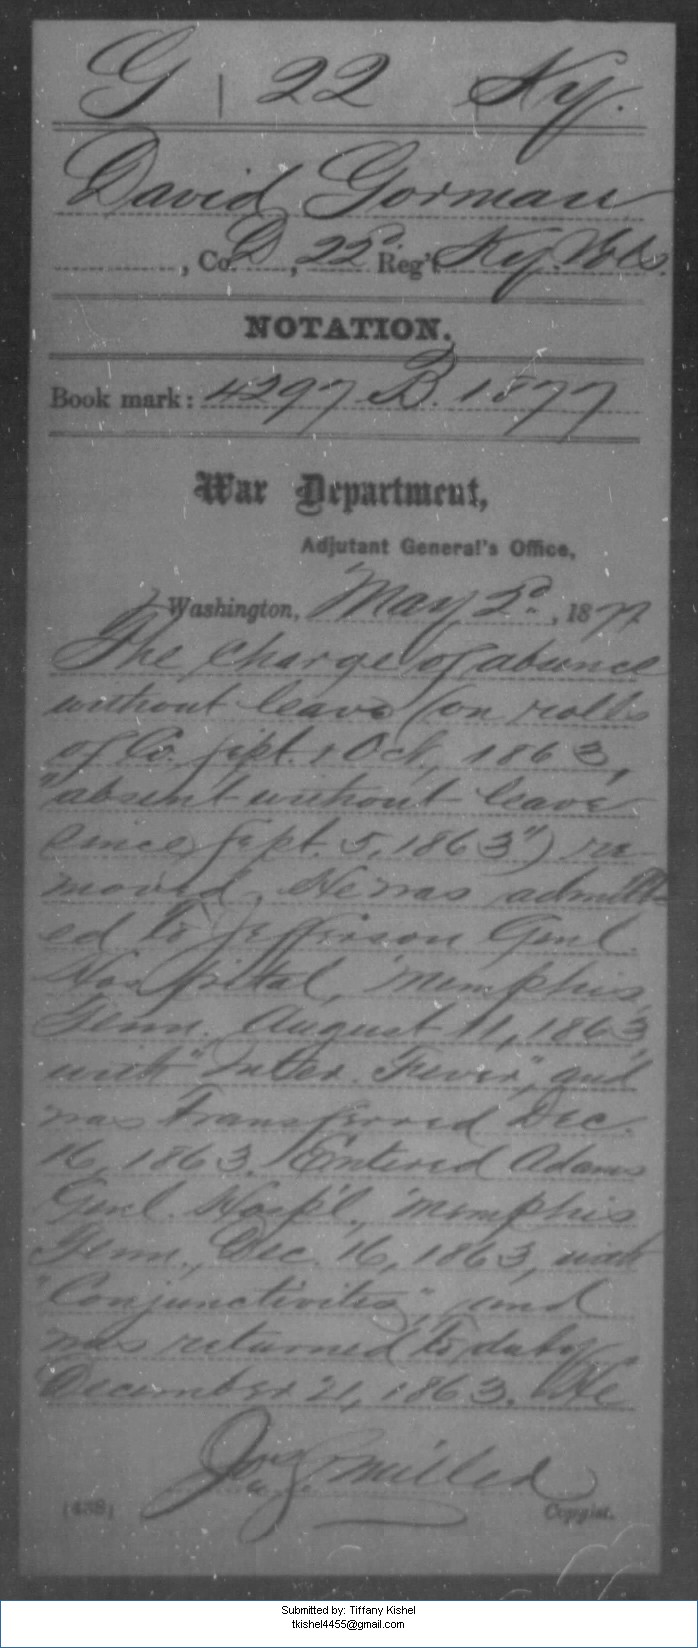 G | 22 Ky.
David Gorman
, Co. D, 22d Reg't Ky. Vols.
NOTATION.
Book mark: 4297 B. 1877
War Department,
Adjutant General's Office,
Washington, May 2d, 1877
The charge of absence
without leave (on rolls
of Co. Sept. & Oct., 1863,
"absent without leave
since Sept. 5, 1863") re-
moved. He was admitt-
ed to Jefferson Genl.
Hospital, Memphis,
Tenn. August 11, 1863,
with "Inter. Fever", and
was transferred Dec.
16, 1863. Entered Adams
Genl. Hosp'l, Memphis
Tenn., Dec. 16, 1863, with
"Conjunctivitis", and
was returned to duty
December 21, 1863. He
Miller
(458) Copyist.
Submitted by: Tiffany Kishel
tkishel4455@gmail.com